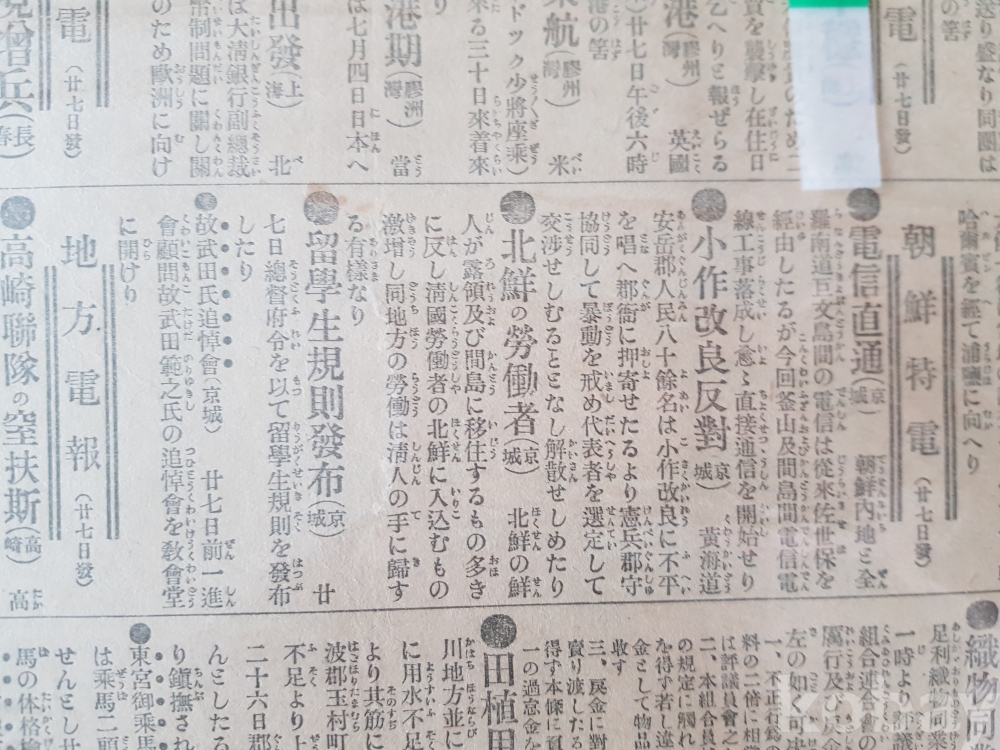 送り盛なり同團は
の筈
電
(廿七日發)
賓を襲擊し在住日
乙へりと報ぜらる
港
(膠州灣)
英國
廿七日午後六時
港の筈
來航
(膠州灣)
米
ドック少將座乘)
來る三十日來着來
り
港期
(膠州灣)
當
は七月四日日本へ
出發
(上海)
北
は大淸銀行副總裁
幣制問題に關し關
のため歐洲に向け
電
(廿七日發)
增兵
(長春)
哈爾賓を經て浦鹽に向へり
朝鮮特電
(廿七日發)
●電信直通(京城) 朝鮮内地と全
羅南道巨文島間の電信は從來佐世保を
經由したるが今回釜山及間島間電信電
線工事落成し愈ゝ直接通信を開始せり
●小作改良反對(京城) 黃海道
安岳郡人民八十餘名は小作改良に不平
を唱へ郡衙に押寄せたるより憲兵郡守
協同して暴動を戒め代表者を選定して
交涉せしむることとなし解散せしめたり
●北鮮の勞働者(京城) 北鮮の鮮
人が露領及び間島に移住するもの多き
に反し淸國勞働者の北鮮に入込むもの
激增し同地方の勞働は淸人の手に歸す
る有樣なり
●留學生規則發布(京城) 廿
七日總督府令を以て留學生規則を發布
したり
●故武田氏追悼會(京城) 廿七日前一進
會顧問故武田範之氏の追悼會を敎會堂
に開けり
地方電報
(廿七日發)
●高崎聯隊の空扶斯(高崎) 高
●織物同業
足利織物同業
一時より評議
組合連合會の
厲行及び
左の如く可決
一、不正行爲
料の二倍に相當
は評議員會之
二、本組合員
の規定に觸れ
を得ず若し違
金として物品
收す
三、戻金に對
賣り渡したる
得ず本條に
一の過怠金を
●田植
川地方並に
に用水不足
より其筋に
波郡玉村町
不足より上
二十六日郡
んとしたる
り鎭撫され
●東宮御乘馬
は乘馬二頭
せんとし
馬の体格檢